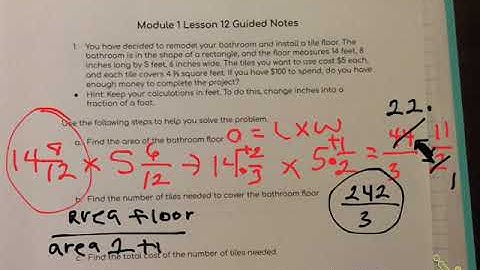 Module 1 Lesson 12 Guided Notes
1. You have decided to remodel your bathroom and install a tile floor. The
bathroom is in the shape of a rectangle, and the floor measures 14 feet, 8
inches long by 5 feet, 6 inches wide. The tiles you want to use cost $5 each,
and each tile covers 4 ⅔ square feet. If you have $100 to spend, do you have
enough money to complete the project?
• Hint: Keep your calculations in feet. To do this, change inches into a
fraction of a foot.
Use the following steps to help you solve the problem.
22
a. Find the area of the bathroom floor. a = L x W
14 8/12 x 5 6/12 → 14 +2/•3 x 5 +1/•2 = 44/3 11/2
1
b. Find the number of tiles needed to cover the bathroom floor.
242/3
Area floor
area 1 t
c. Find the total cost of the number of tiles needed.